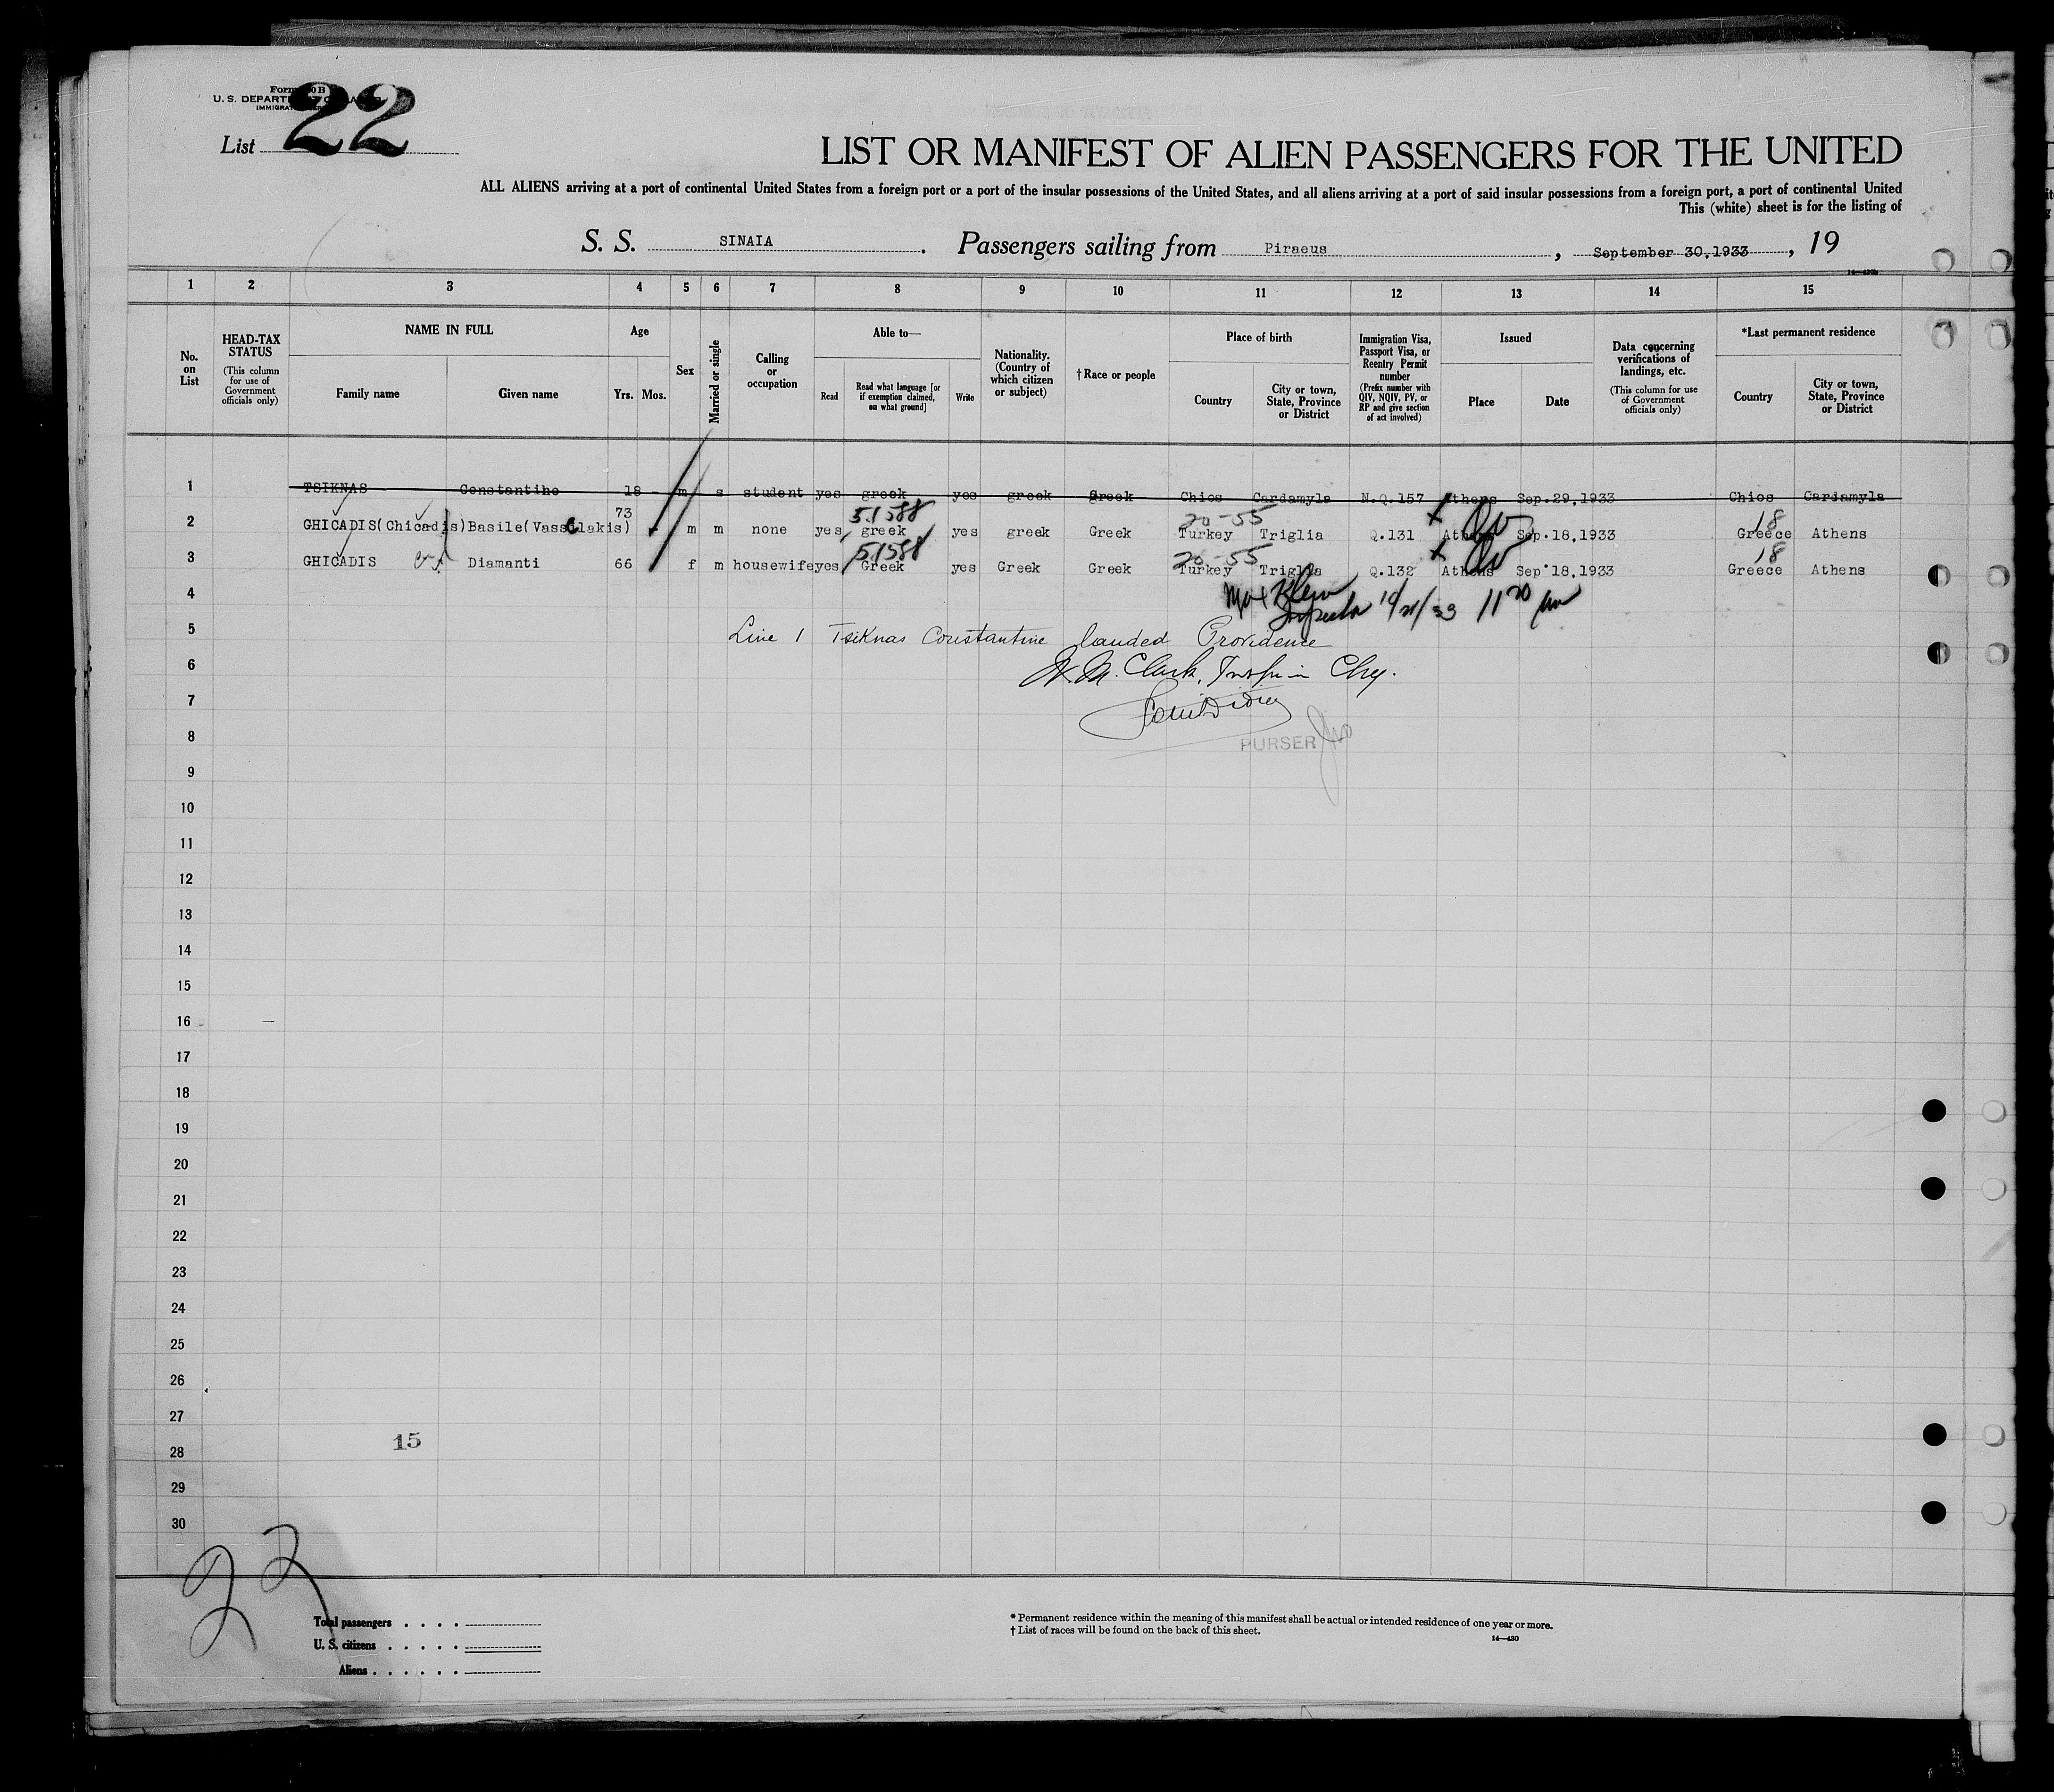 22
U. S. DEPART
List
LIST OR MANIFEST OF ALIEN PASSENGERS FOR THE UNITED
ALL ALIENS arriving at a port of continental United States from a foreign port or a port of the insular possessions of the United States, and all aliens arriving at a port of said insular possessions from a foreign port, a port of continental United
This (white) sheet is for the listing of
S. S. SINAIA. Passengers sailing from Piraeus, September 30,1933, 19
1 2 3 4 5 6 7 8 9 10 11 12 13 14 15
No. on List
HEAD-TAX STATUS (This column for use of Government officials only)
NAME IN FULL
Family name Given name
Age
Yrs. Mos.
Sex
Married or single
Calling or occupation
Able to—
Read
Read what language [or if exemption claimed, on what ground]
Write
Nationality. (Country of which citizen or subject)
†Race or people
Place of birth
Country
City or town, State, Province or District
Immigration Visa, Passport Visa, or Reentry Permit number (Prefix number with QIV, NQIV, PV, or RP and give section of act involved)
Issued
Place Date
Data concerning verifications of landings, etc. (This column for use of Government officials only)
*Last permanent residence
Country
City or town, State, Province or District
1 TSIKNAS Constantine 18 - m s student yes greek yes greek Greek Chios Cardamyla N.Q.157 Athens Sep.29,1933 Chios Cardamyla
73 51588 20-55 18
2 GHICADIS(Chicadis)Basile(Vassilakis) m m none yes greek yes greek Greek Turkey Triglia Q.131 Athens Sep.18,1933 Greece Athens
51588 20-55 18
3 GHICADIS Diamanti 66 f m housewife yes Greek yes Greek Greek Turkey Triglia Q.132 Athens Sep.18,1933 Greece Athens
4 Max Klein
Inspector 10/21/33 11 20 am
5 Line 1 Tsiknas Constantine landed Providence
6 Clark, Insp in Chg.
7
8 PURSER
9
10
11
12
13
14
15
16
17
18
19
20
21
22
23
24
25
26
27
15
28
29
30
22
Total passengers . . . .
U. S. citizens . . . . .
Aliens . . . . . .
* Permanent residence within the meaning of this manifest shall be actual or intended residence of one year or more.
† List of races will be found on the back of this sheet.
14—430